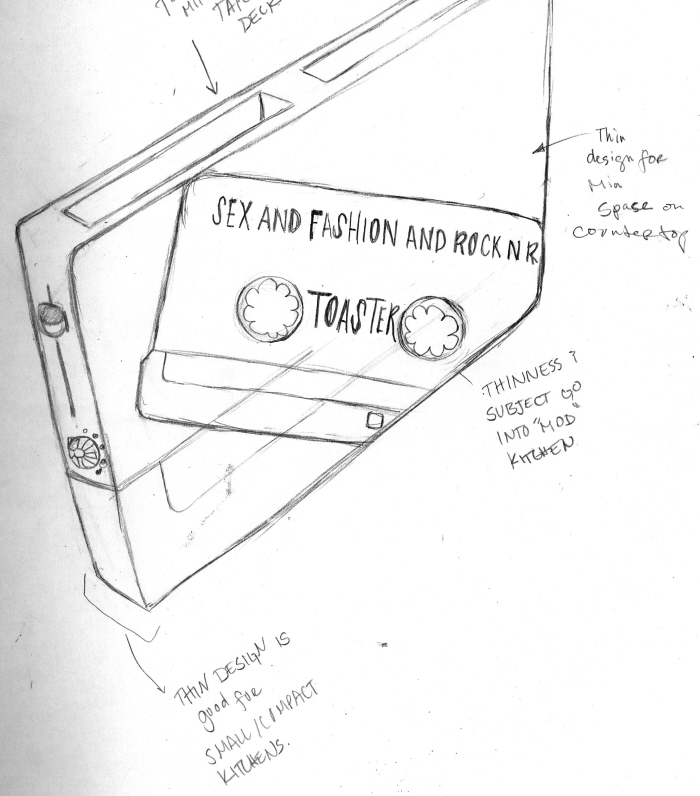 TAPE
DECK
Thin
design for
Min
Space on
countertop
SEX AND FASHION AND ROCK N R
TOASTER
THINNESS &
SUBJECT GO
INTO "MOD"
KITCHEN
THIN DESIGN IS
good for
SMALL/COMPACT
KITCHENS.